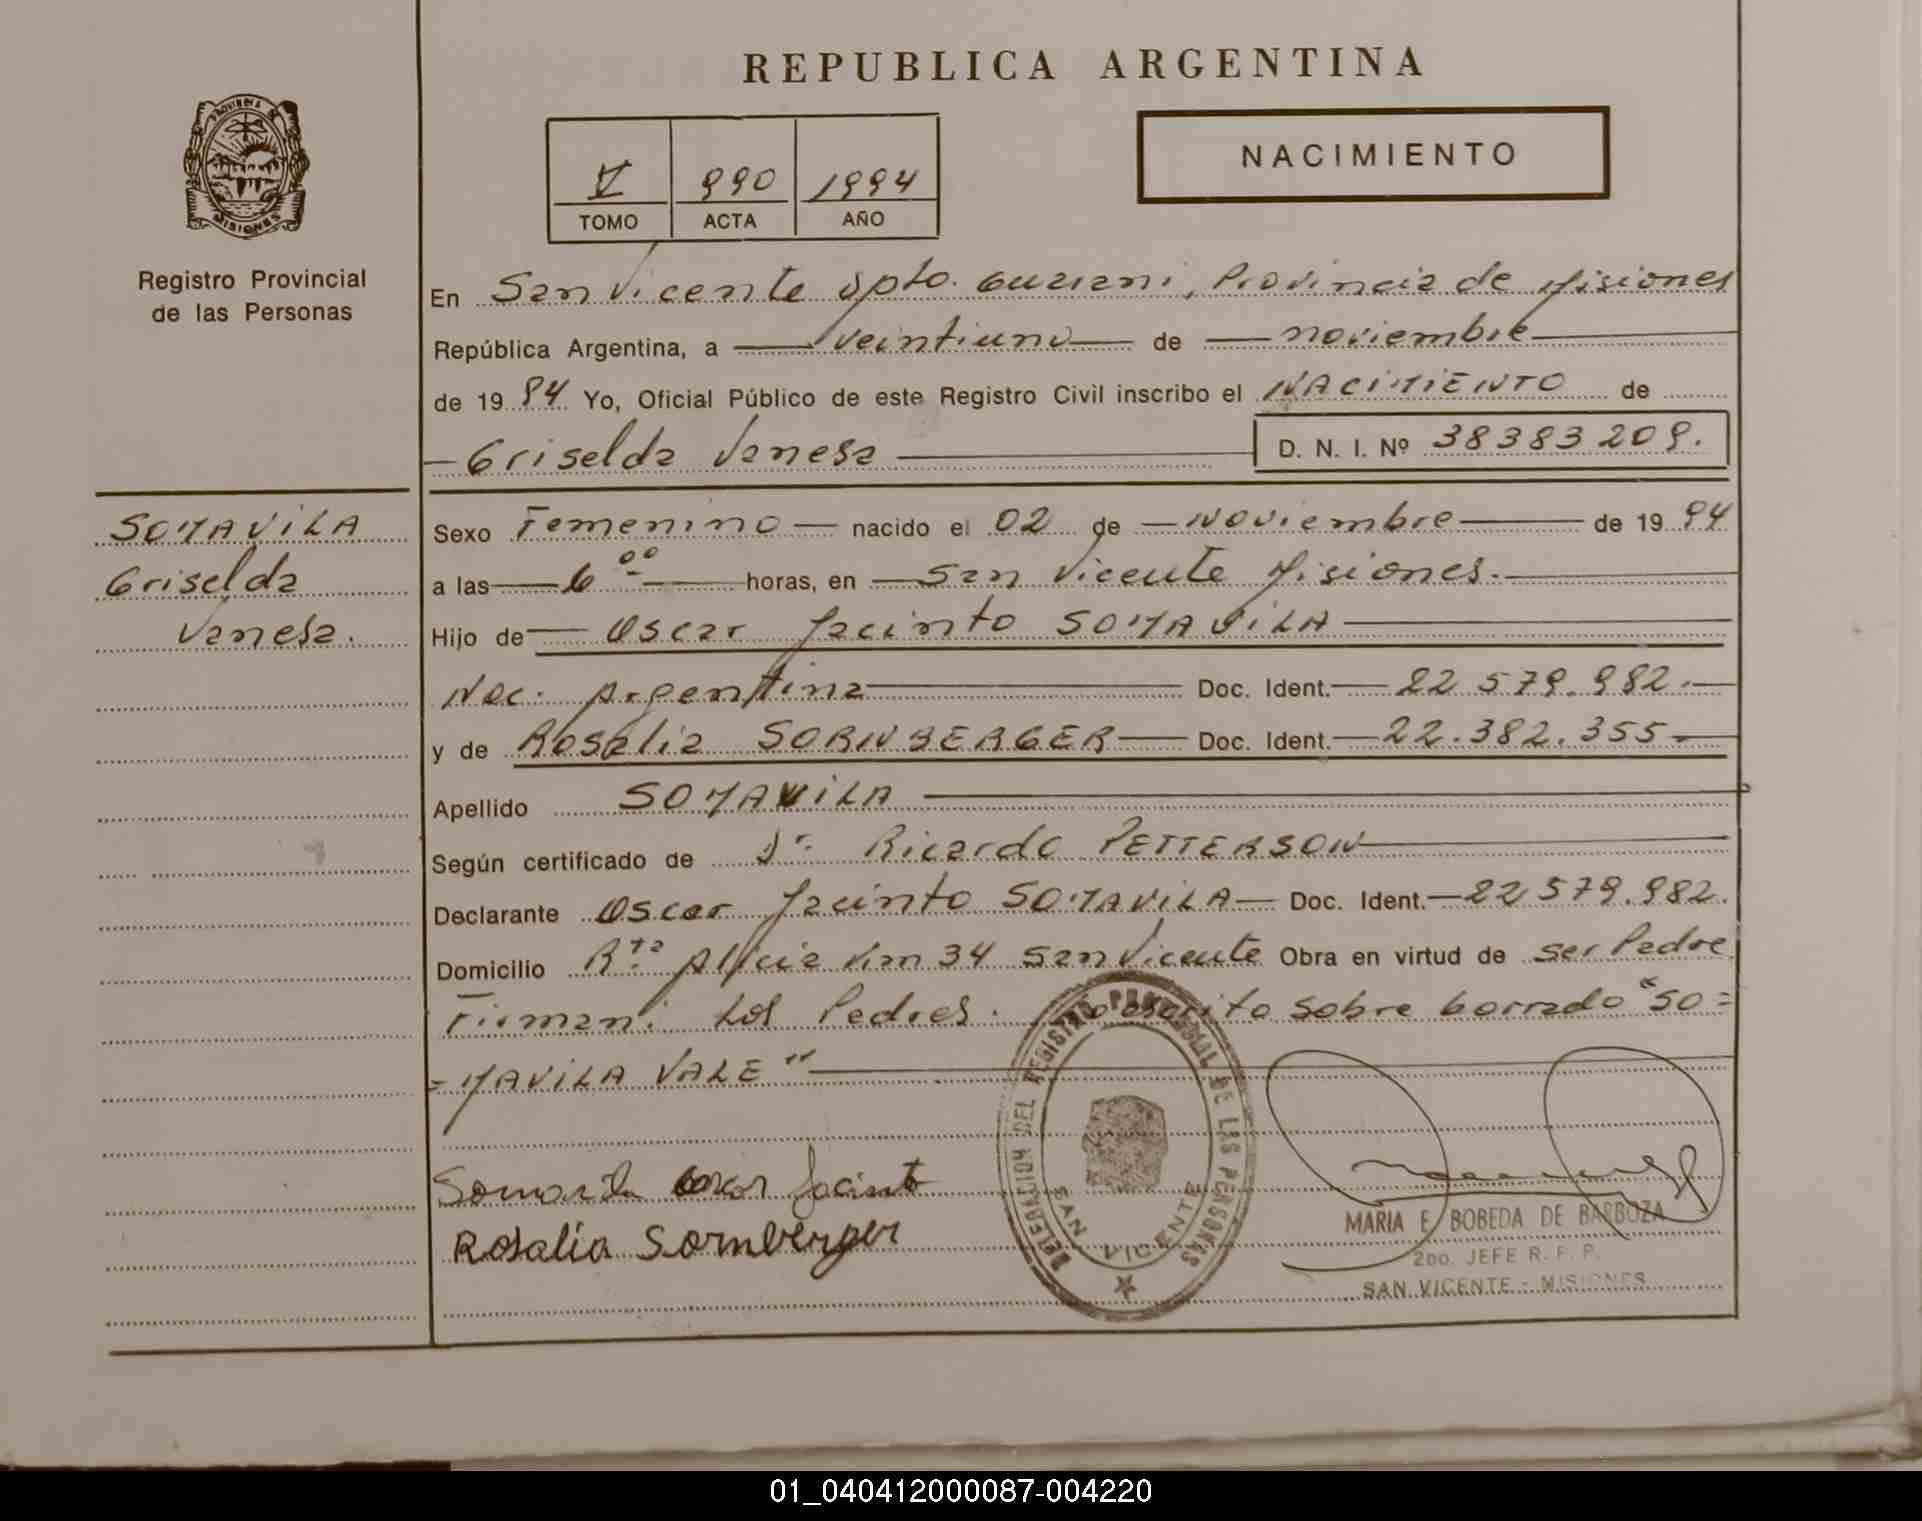 REPUBLICA ARGENTINA
PROVINCIA DE
MISIONES
V 990 1994
TOMO ACTA AÑO
NACIMIENTO
Registro Provincial
de las Personas
En San Vicente Dpto. Guarani, Provincia de Misiones
República Argentina, a veintiuno de noviembre
de 19 94 Yo, Oficial Público de este Registro Civil inscribo el NACIMIENTO de
Griselda Vanesa D. N. I. Nº 38383209.
SOMAVILA
Griselda
Vanesa.
Sexo Femenino nacido el 02 de Noviembre de 19 94
a las 6 00 horas, en San Vicente Misiones.
Hijo de Oscar Jacinto SOMAVILA
Nac. Argentina Doc. Ident. 22 579.982.
y de Rosalia SORNBERGER Doc. Ident. 22.382.355
Apellido SOMAVILA
Según certificado de Dr. Ricardo PETTERSON
Declarante Oscar Jacinto SOMAVILA Doc. Ident. 22 579.982.
Domicilio Rta Alicia km 34 San Vicente Obra en virtud de ser Padre
Firman: Los Padres. escrito sobre borrado "SO=
=MAVILA VALE"
Somavila Oscar Jacinto
Rosalia Sornberger
DELEGACION DEL REGISTRO PROVINCIAL DE LAS PERSONAS
SAN VICENTE
MARIA E. BOBEDA DE BARBOZA
2do. JEFE R. P. P.
SAN VICENTE - MISIONES
01_040412000087-004220